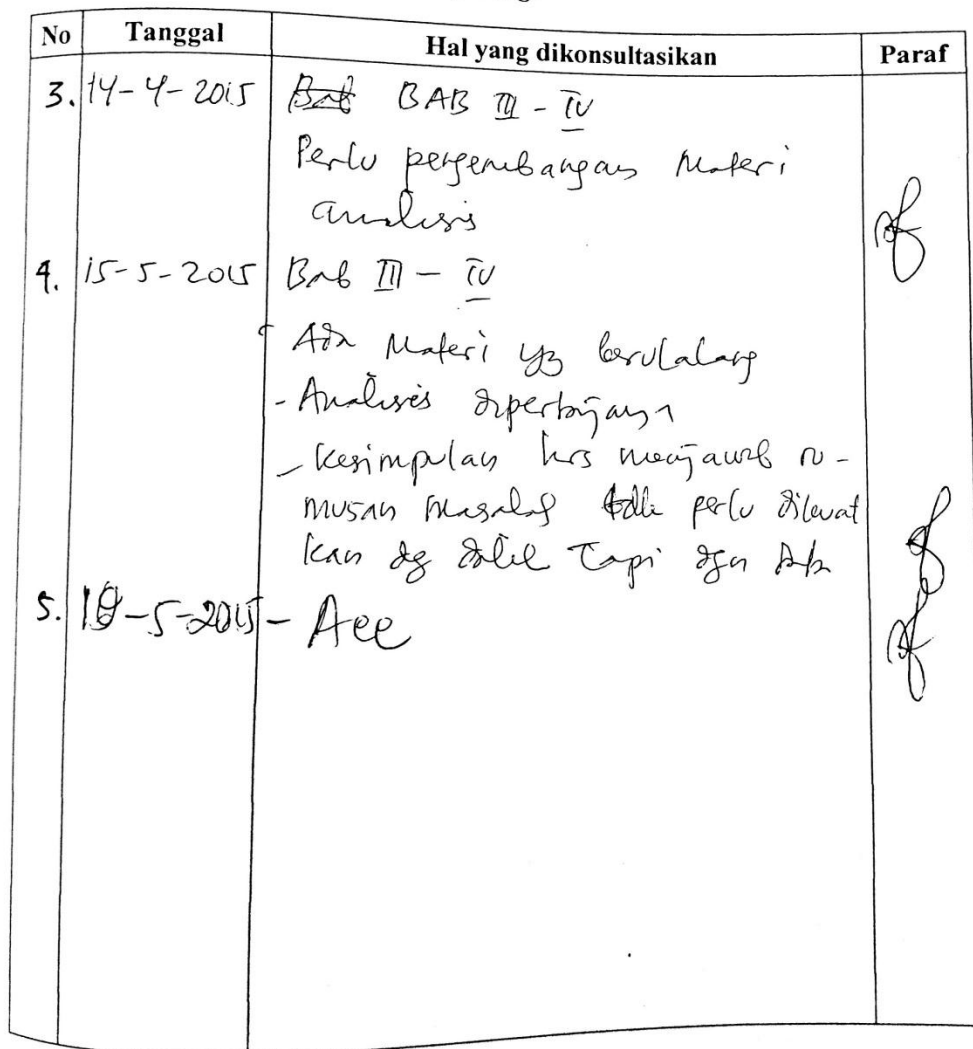 No Tanggal Hal yang dikonsultasikan Paraf
3. 14-4-2015 Bab BAB III - IV
Perlu pengembangan Materi
analisis
4. 15-5-2015 Bab III - IV
Ada Materi yg berulalang
- Analisis dipertajam
- Kesimpulan hrs menjawab ru-
musan masalah tdk perlu
kan dg dalil Tapi dgn
5. -5-2015 - Acc